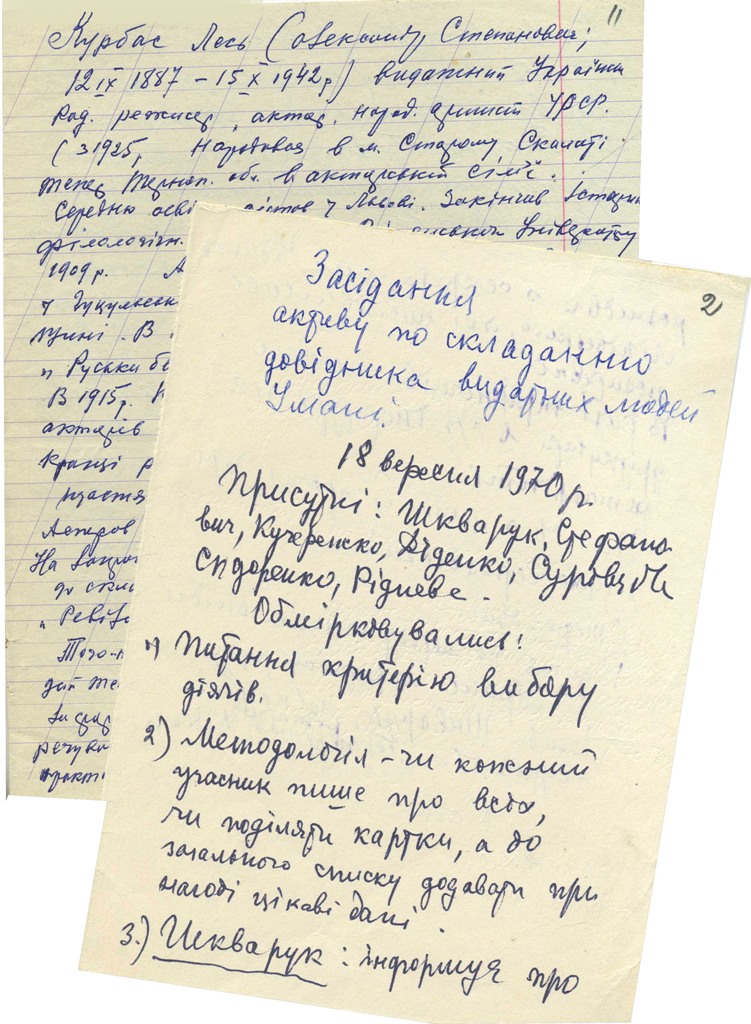 11
Курбас Лесь (Олександр Степанович;
12 IX 1887 – 15 X 1942р) видатний Україн
Рад. режисер, актор, народ. артист УРСР.
(з 1925, Народився в м. Старому Скалаті
тепер Терноп. обл. в акторській сім'ї.
Середню осві у Львові. Закінчив Істори
філологічн. Університету
1909 р.
у Гуцульськ
В
п Руська бе
В 1915р.
акторів
Кращі р
щастя
На
до
„Реві
Того
2
Засідання
активу по складанню
довідника видатних людей
Умані.
18 вересня 1970 р.
Присутні: Шкварук, Стефано
вич, Кучеренко, Діденко, Суровцова
Сидоренко, Ріднєве.
Обмірковувались:
1) Питання критерію вибору
діячів.
2) Методологія – чи кожний
учасник пише про всіх,
чи поділяти картки, а до
загального списку додавати при
нагоді цікаві дані.
3.) Шкварук: інформує про